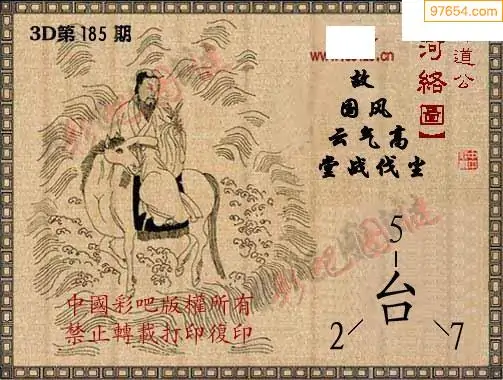 97654.com
3D第185期
道公
河絡圖】
故
国风
云气高
堂战伐尘
5
台
2 7
中國彩吧版權所有
禁止轉載打印復印